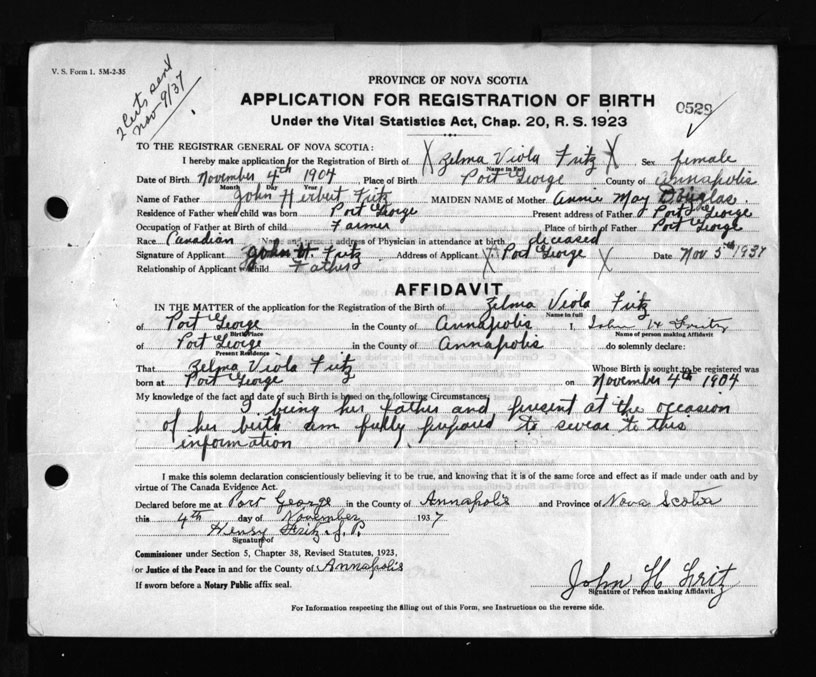 V. S. Form 1. 5M-2-35
2 Certs sent
Nov 9/37
PROVINCE OF NOVA SCOTIA
APPLICATION FOR REGISTRATION OF BIRTH
0529
Under the Vital Statistics Act, Chap. 20, R. S. 1923
TO THE REGISTRAR GENERAL OF NOVA SCOTIA:
I hereby make application for the Registration of Birth of Zelma Viola Fritz Sex female
Name in Full
Date of Birth November 4th 1904 Place of Birth Port George County of Annapolis
Month Day Year
Name of Father John Herbert Fritz MAIDEN NAME of Mother Annie May Douglas.
Residence of Father when child was born Port George Present address of Father Port George
Occupation of Father at Birth of child Farmer Place of birth of Father Port George
Race Canadian Name and present address of Physician in attendance at birth diceased
Signature of Applicant John H. Fritz Address of Applicant Port George Date Nov 5th 1937
Relationship of Applicant to child Father
AFFIDAVIT
IN THE MATTER of the application for the Registration of the Birth of Zelma Viola Fritz
Name in full
of Port George in the County of Annapolis I, John H Fritz
Birth Place Name of person making Affidavit
of Port George in the County of Annapolis do solemnly declare:
Present Residence
That Zelma Viola Fritz Whose Birth is sought to be registered was
born at Port George on November 4th 1904
My knowledge of the fact and date of such Birth is based on the following Circumstances:
I being her father and present at the occasion
of her birth am fully prepared to swear to this
information
I make this solemn declaration conscientiously believing it to be true, and knowing that it is of the same force and effect as if made under oath and by
virtue of The Canada Evidence Act.
Declared before me at Port George in the County of Annapolis and Province of Nova Scotia
this 4th day of November 1937
Henry Fritz J. P.
Signature of
Commissioner under Section 5, Chapter 38, Revised Statutes, 1923,
or Justice of the Peace in and for the County of Annapolis
If sworn before a Notary Public affix seal.
John H Fritz
Signature of Person making Affidavit.
For Information respecting the filling out of this Form, see Instructions on the reverse side.